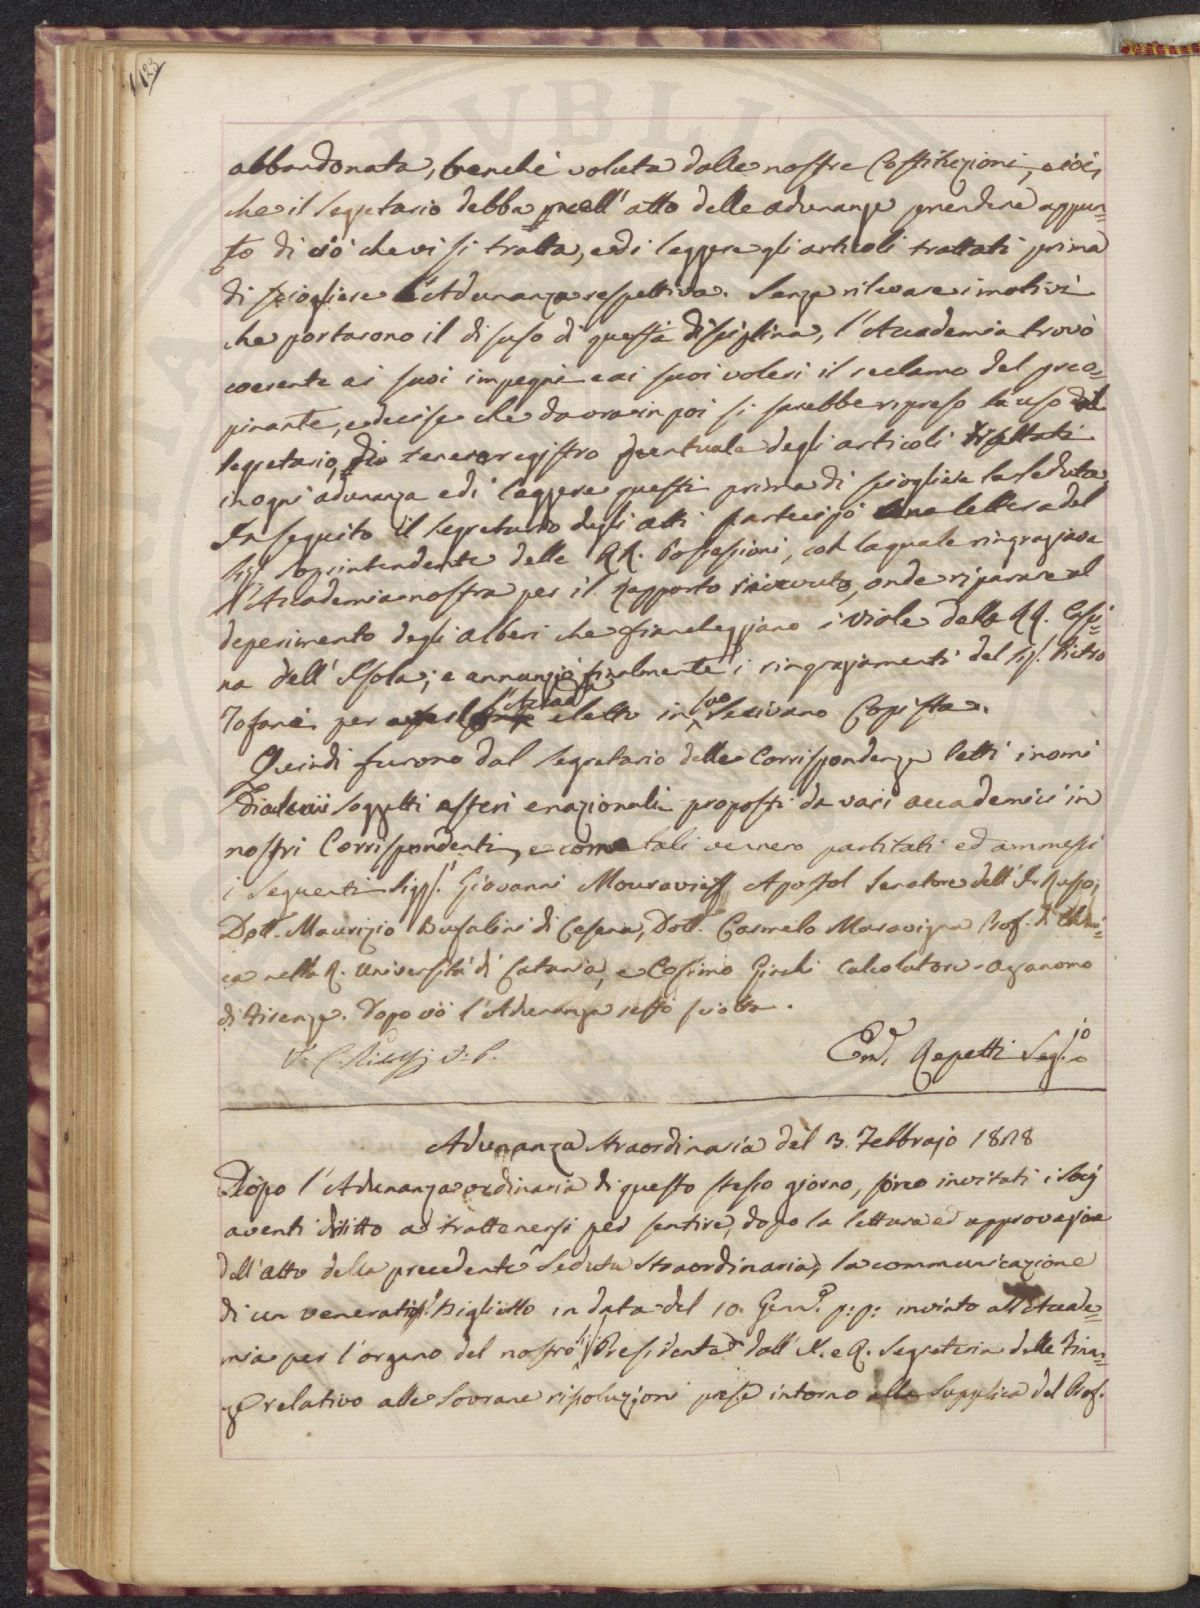 123
abbandonata, benchè voluta dalle nostre Costituzioni, cioè,
che il Segretario debba nell'atto delle adunanze prendere appun=
to di ciò che vi si tratta, e di leggere gli articoli trattati prima
di sciogliere l'Adunanza respettiva. Senza rilevare i motivi
che portarono il disuso di questa disciplina, l'Accademia trovò
coerente ai suoi impegni e ai suoi voleri il reclamo del preo=
pinante, e decise che da ora in poi si sarebbe ripreso l'uso dal
Segretario, di tenere registro puntuale degli articoli
in ogni adunanza e di leggere questi prima di sciogliere la seduta.
In seguito il Segretario degli atti partecipò una lettera del
Sig. Soprintendente delle RR. Possessioni, con la quale ringraziava
l'Accademia nostra per il rapporto ricevuto, onde riparare al
deperimento degli alberi che fiancheggiano i viali delle RR. Casci=
na dell'Isola; e annunziò finalmente i ringraziamenti del Sig. Pietro
Tofani per l'Accad.a eletto in suo Scrivano Copista.
Quindi furono dal Segretario delle Corrispondenze letti i nomi
di alcuni soggetti esteri e nazionali proposti da vari accademici in
nostri Corrispondenti, e come tali vennero partitati ed ammessi
i seguenti Sigg.ri Giovanni Mouravieff Apostol Senatore dell'I. Russo;
Dott. Maurizio Bufalini di Cesena, Dott. Carmelo Maravigna Prof. di Chimi=
ca nella R. Università di Catania, e Cosimo Giorchi Calcolatore-agronomo
di Firenze. Dopo ciò l'Adunanza restò sciolta.
V. C. Ridolfi V. P.
Em. Repetti Seg.io
Adunanza straordinaria del 3. Febbrajo 1828
Dopo l'Adunanza ordinaria di questo stesso giorno, furono invitati i Socj
aventi diritto a trattenersi per sentire, dopo la lettura ed approvazione
dell'atto della precedente Seduta straordinaria, la communicazione
di un venerato Biglietto in data del 10. Genn.o p:p: inviato all'Accade=
mia per l'organo del nostro Presidente dall'I. e R. Segreteria delle Finan=
ze relativo alle Sovrane risoluzioni prese intorno alla Supplica del Prof.